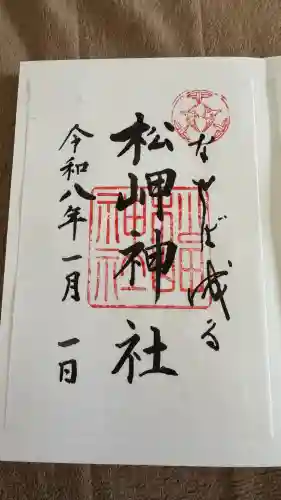 なせば成る
松岬神社
令和八年一月一日